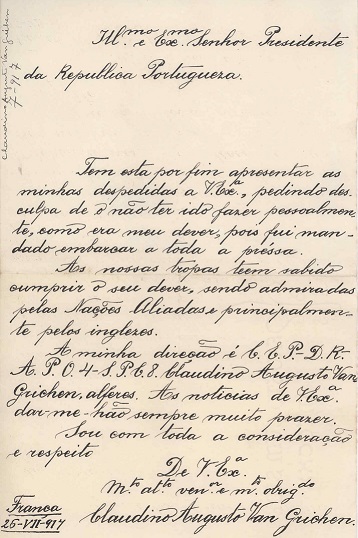 Claudino Augusto Van Grichen
7-9-17
Ill.mo e Ex.mo Senhor Presidente
da Republica Portugueza.
Tem esta por fim apresentar as
minhas despedidas a V. Ex.ª, pedindo des-
culpa de o não ter ido fazer pessoalmen-
te, como era meu dever, pois fui man-
dado embarcar a toda a préssa.
As nossas tropas teem sabido
cumprir o seu dever, sendo admiradas
pelas Nações Aliadas e principalmen-
te pelos inglezes.
A minha direcão é C.E.P.-D.R.-
A.P.O.4-S.P.C.8. Claudino Augusto Van
Grichen, alferes. As noticias de V. Ex.ª
dar-me-hão sempre muito prazer.
Sou com toda a consideração
e respeito
De V. Ex.ª
M.to at.to ven.or e m.to obrig.do
Claudino Augusto Van Grichen.
França
26-VII-917